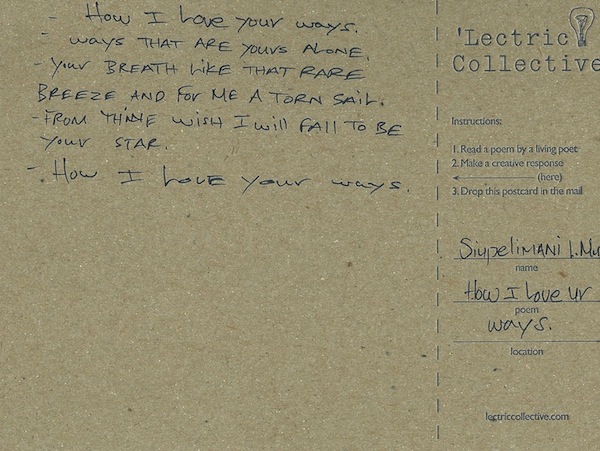 - How I Love your ways.
- ways THAT ARE YOURS ALONE.
- your BREATH LIKE THAT RARE
BREEZE AND FOR ME A TORN SAIL.
- FROM THINE WISH I will FALL TO BE
your STAR.
- How I LovE your ways.
'Lectric
Collective
Instructions:
1. Read a poem by a living poet
2. Make a creative response
(here)
3. Drop this postcard in the mail
name
How I Love Ur
poem
ways.
location
lectriccollective.com